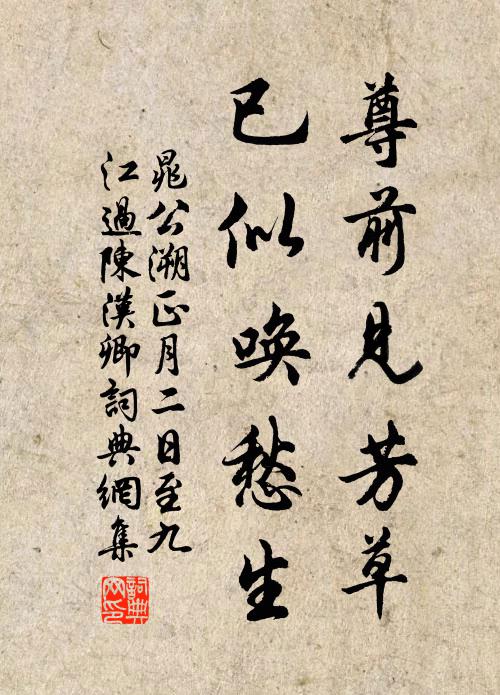 尊前見芳草
已似喚愁生
晁公溯正月二日至九
江過陳漢卿詞典網集
詞典
网印